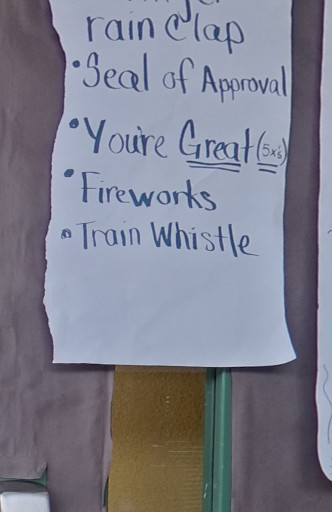 rain Clap
• Seal of Approval
• You're Great (5x's)
• Fireworks
• Train Whistle